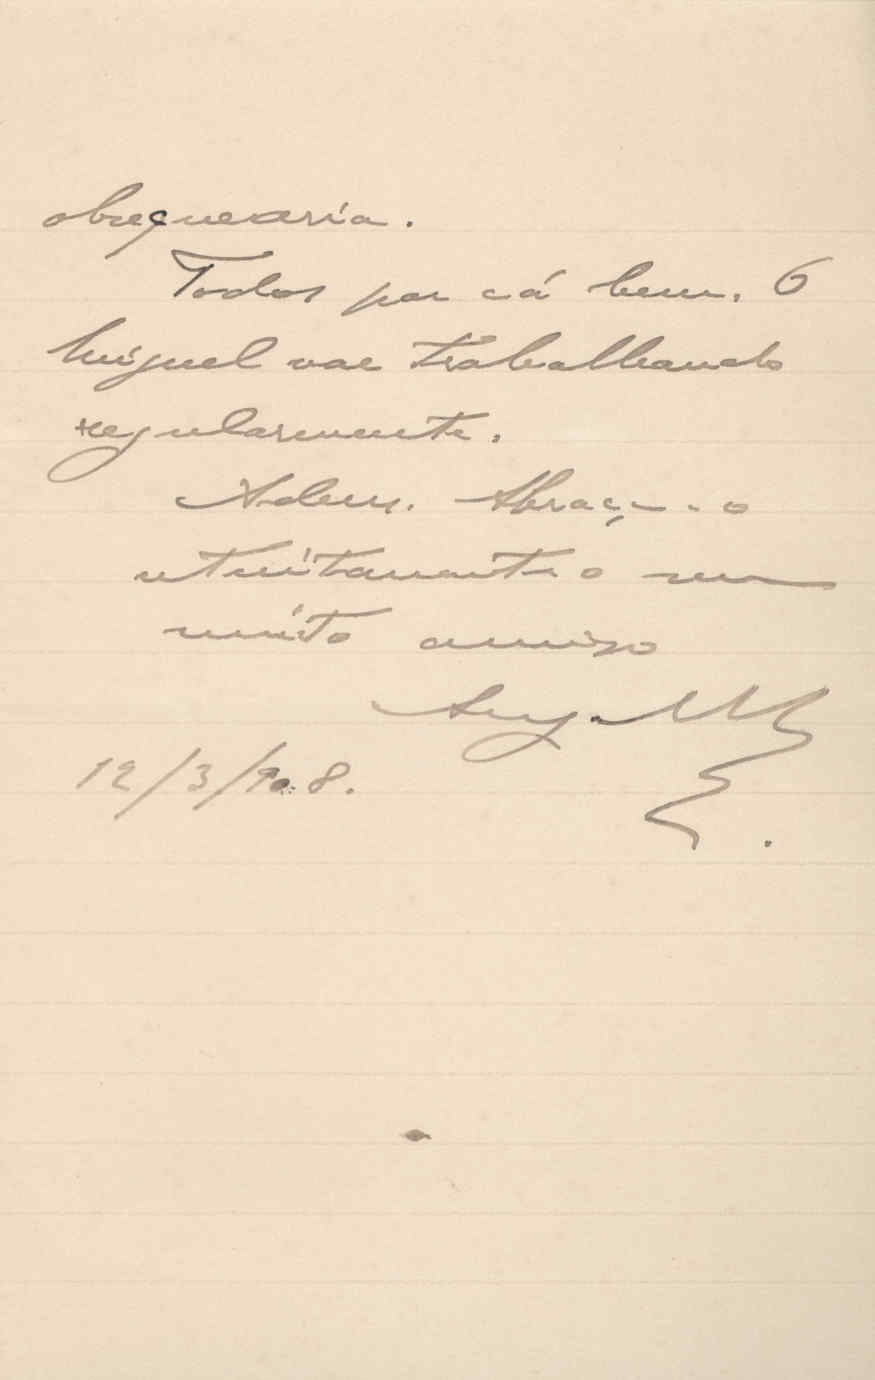 obsequearia.
Todos por cá bem. O
Miguel vae trabalhando
regularmente.
Adeus. Abraça-o
muito amigo
12/3/908.